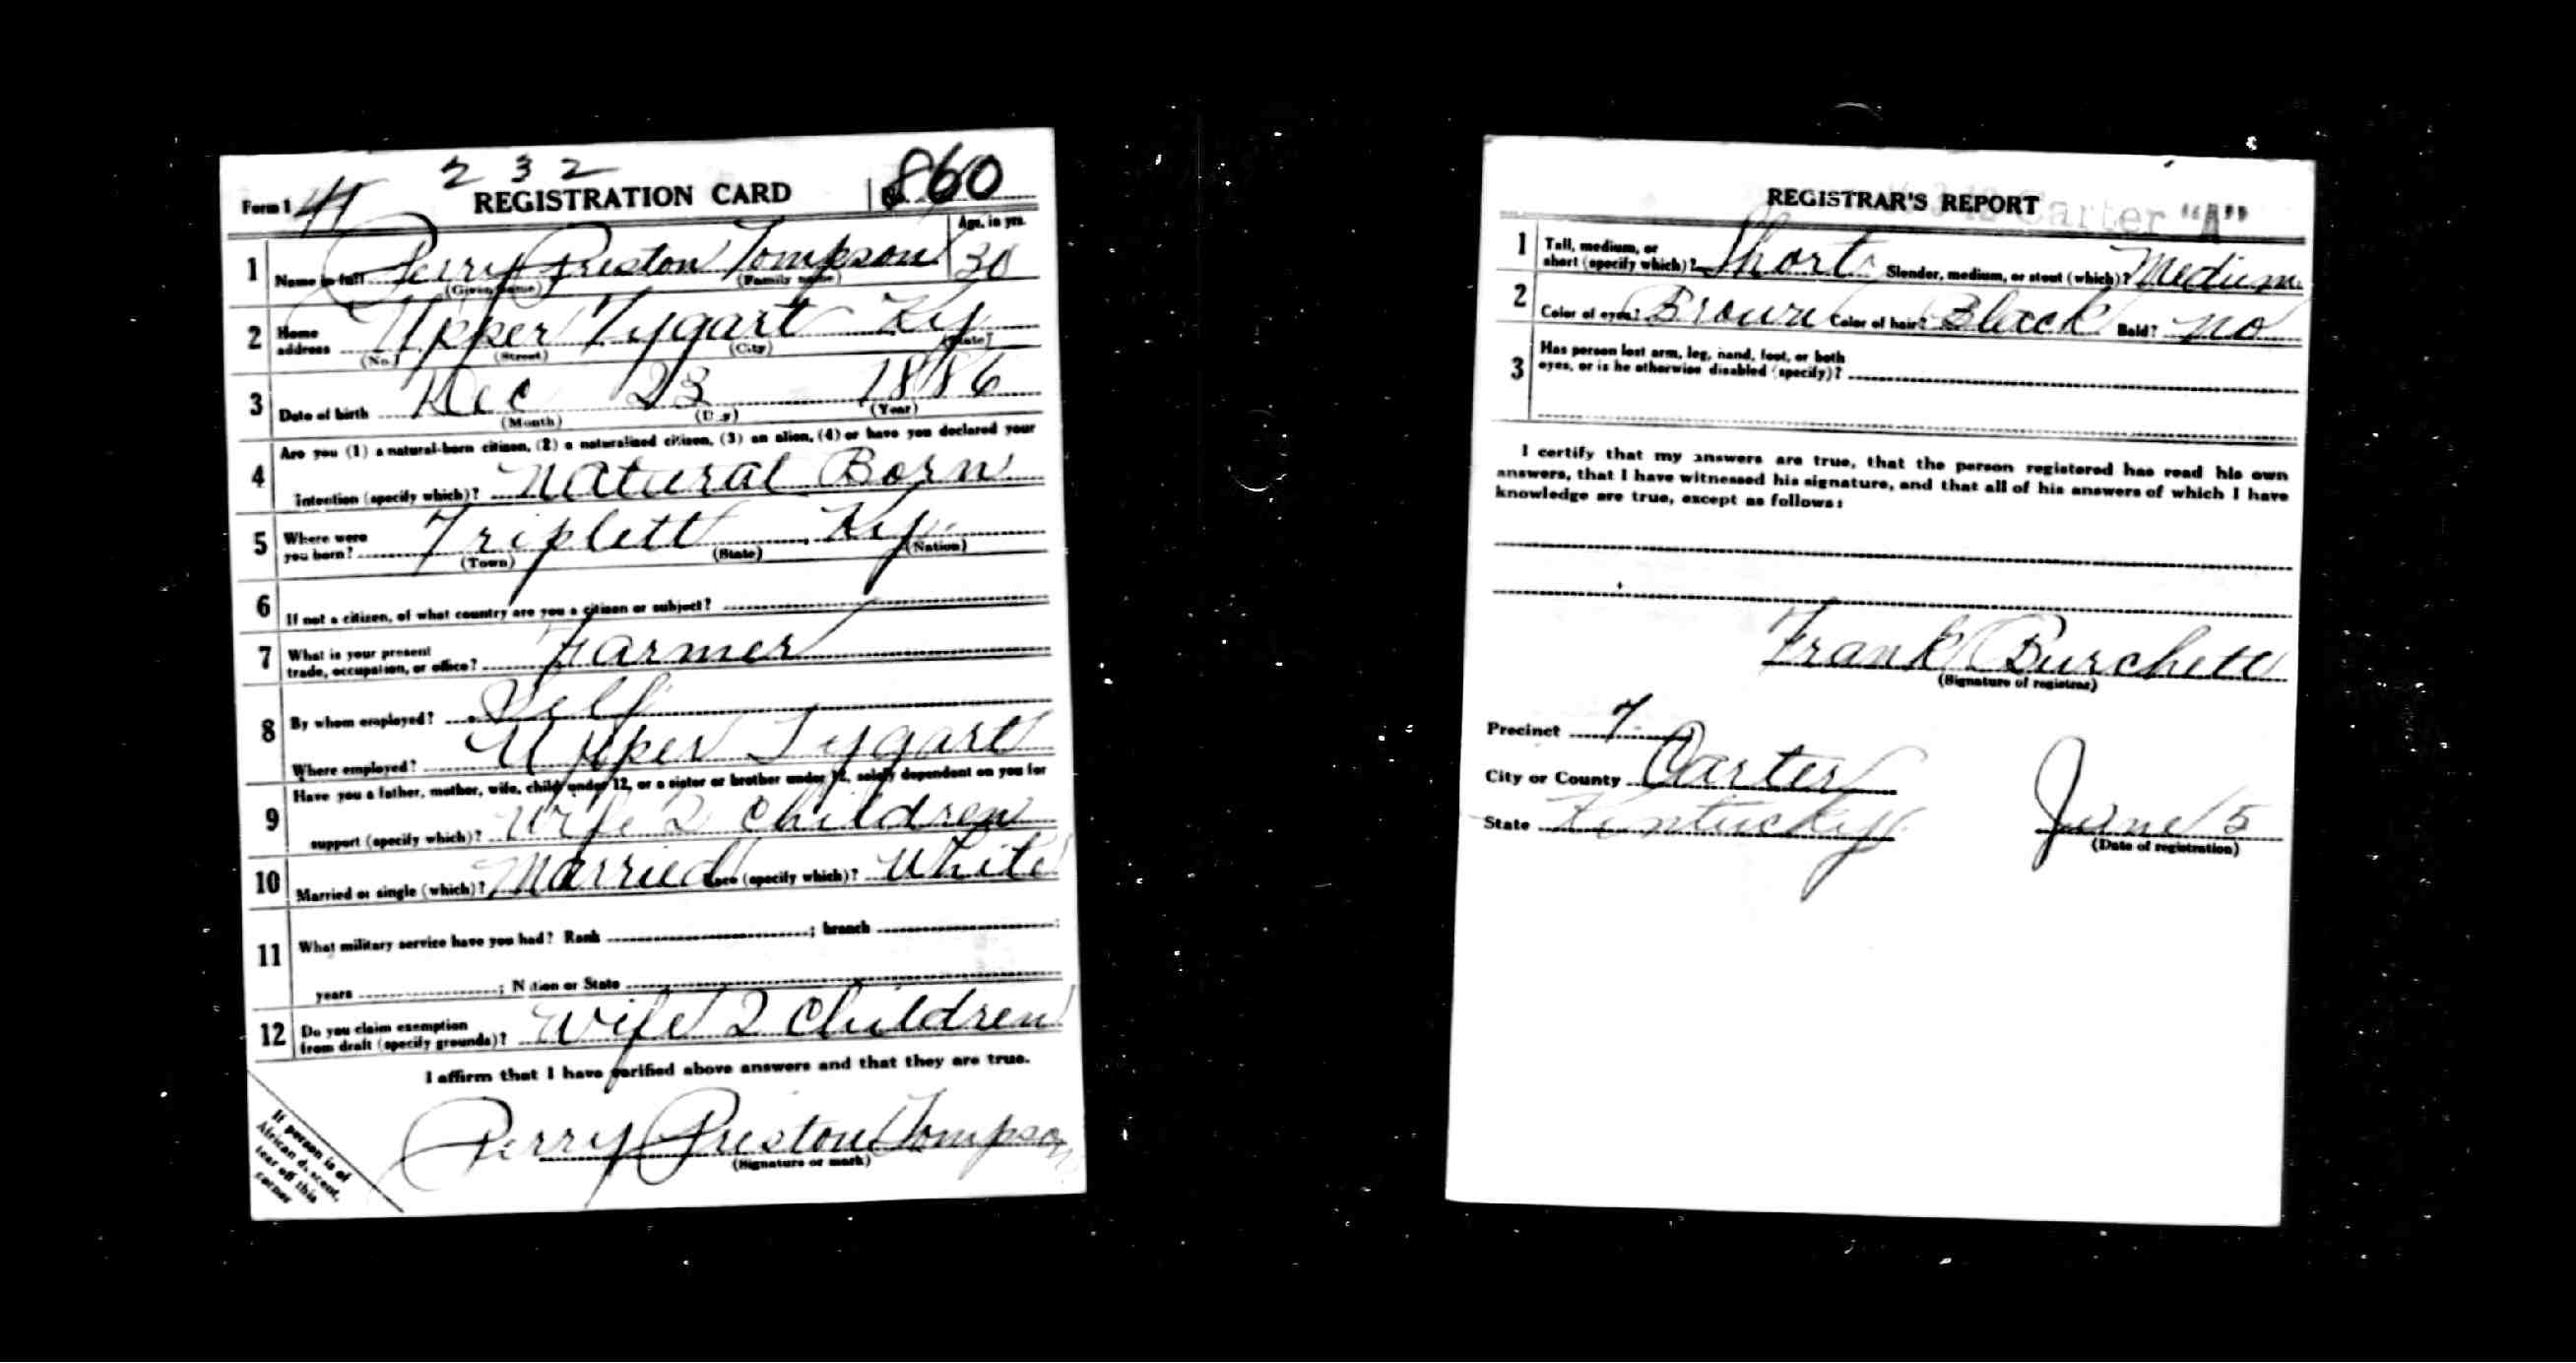 2 3 2
Form 1 41 REGISTRATION CARD 860
Age, in yrs.
1 Name in full Perry Preston Tompson 30
(Given name) (Family name)
2 Home address Upper Tygart Ky
(No.) (Street) (City) (State)
3 Date of birth Dec 23 1886
(Month) (Day) (Year)
4 Are you (1) a natural-born citizen, (2) a naturalized citizen, (3) an alien, (4) or have you declared your
intention (specify which)? Natural Born
5 Where were
you born? Triplett, Ky.
(Town) (State) (Nation)
6 If not a citizen, of what country are you a citizen or subject?
7 What is your present
trade, occupation, or office? Farmer
8 By whom employed? Self
Where employed? Upper Tygart
9 Have you a father, mother, wife, child under 12, or a sister or brother under 12, solely dependent on you for
support (specify which)? Wife 2 Children
10 Married or single (which)? Married Race (specify which)? White
11 What military service have you had? Rank ; branch
years ; Nation or State
12 Do you claim exemption
from draft (specify grounds)? Wife 2 Children
I affirm that I have verified above answers and that they are true.
Perry Preston Tompson
(Signature or mark)
If person is of
African descent,
tear off this
corner
REGISTRAR'S REPORT
Carter "A"
1 Tall, medium, or
short (specify which)? Short Slender, medium, or stout (which)? Medium
2 Color of eyes? Brown Color of hair? Black Bald? No
3 Has person lost arm, leg, hand, foot, or both
eyes, or is he otherwise disabled (specify)?
I certify that my answers are true, that the person registered has read his own
answers, that I have witnessed his signature, and that all of his answers of which I have
knowledge are true, except as follows:
Frank Burchett
(Signature of registrar)
Precinct 7
City or County Carter
State Kentucky June 5
(Date of registration)